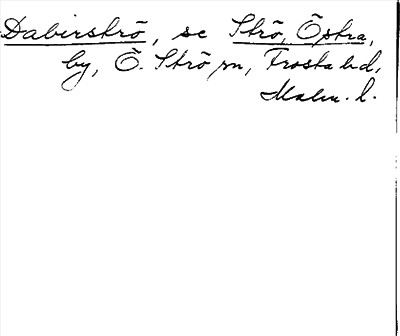 Dabirströ, se Strö, Östra,
by, Ö. Strö sn, Frosta hd,
Malm. l.